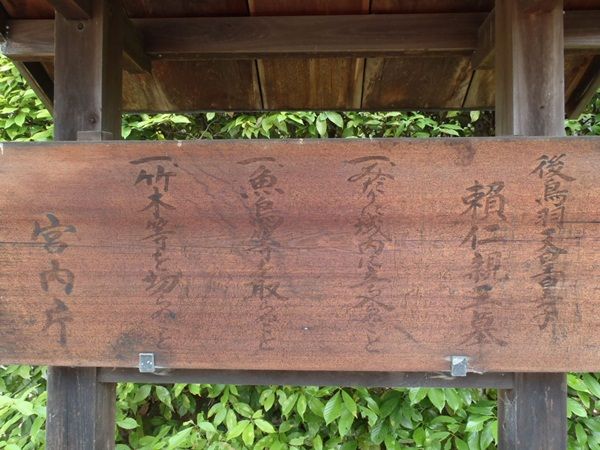 後鳥羽天皇皇子
頼仁親王墓
一、みだりに域内に立ち入らぬこと
一、魚鳥等を取らぬこと
一、竹木等を切らぬこと
宮内庁